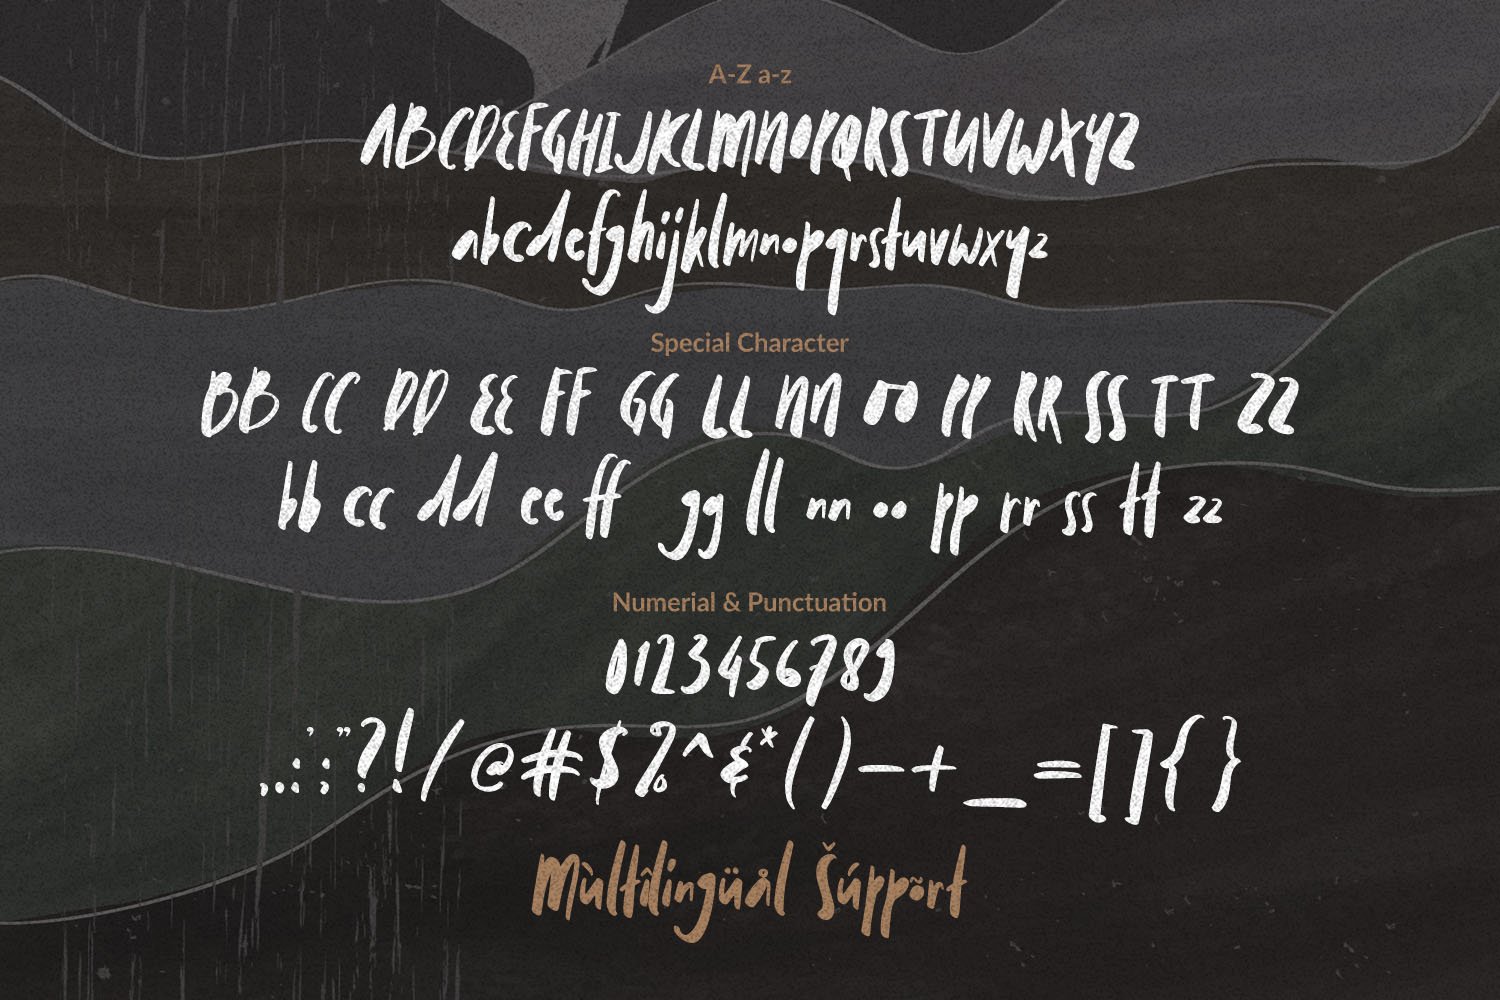 A-Z a-z
ABCDEFGHIJKLMNOPQRSTUVWXYZ
abcdefghijklmnopqrstuvwxyz
Special Character
BB CC DD EE FF GG LL NN OO PP RR SS TT ZZ
bb cc dd ee ff gg ll nn oo pp rr ss tt zz
Numerial & Punctuation
0123456789
,..:;'"?!/@#$%^&*()–+_=[]{}
Mùltîlingüål Šúppõrt